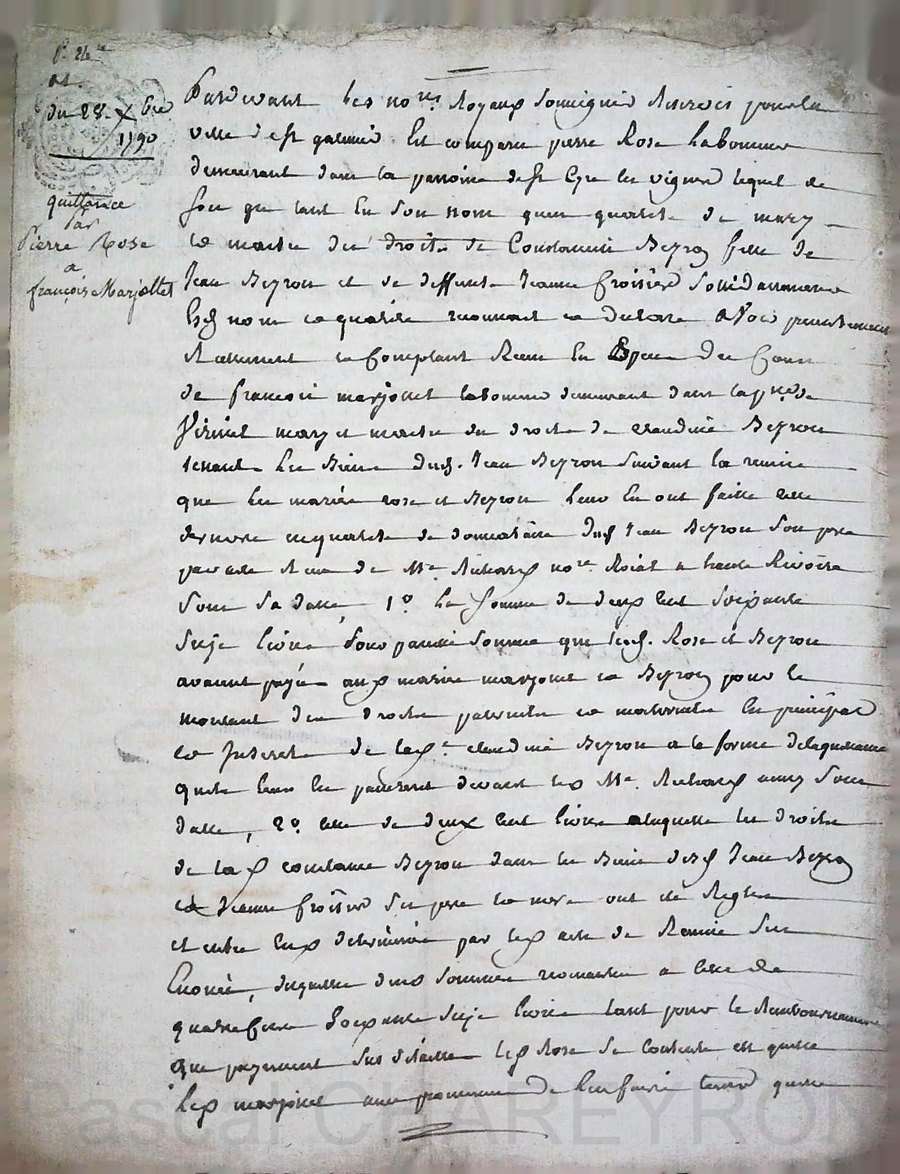 du 28 Xbre
1790
quittance
par
Pierre Rose
a
françois Marjollet
Pardevant les nores Royaux soussignés Reservés pour la
ville de st galmier Est comparu pierre Rose laboureur
demeurant dans la parroisse de st Cyr les vignes lequel de
gré que tant En son nom quen qualité de mary
et maitre des droits de Constance Beyron fille de
Jean Beyron et de deffunte Jeanne froitier solidairement
Esd nom et qualité reconnait et declare avoir presentement
Reellement et Comptant Receu En Especes de Cours
de françois marjollet laboureur demeurant dans la pssе de
Viricel mary et maitre des droits de claudine Beyron
tenant les Biens dud. Jean Beyron suivant la remise
que les mariés rose et Beyron leur En ont faitte cette
derniere en qualité de donnataire dud Jean Beyron son pere
par acte Receu de Me nore Roial a haute Rivoire
sous sa datte, 1o. la somme de deux cent soixante
seize livres pareille somme que lesd. Rose et Beyron
avaient payée aux mariés marjollet et Beyron pour le
montant des droits paternels et maternels En principal
et Interets de lad. claudine Beyron a la forme de la quittance
quils leur En passerent devant led Me aussy sous
datte, 2o. celle de deux cent livres a laquelle les droits
de lad constance Beyron dans les Biens desd Jean Beyron
et Jeanne froitier ses pere et mere ont été Reglés
et entre Eux determinés par led acte de Remise sus
Enoncé, desquelles deux sommes revenantes a celle de
quatre cent soixante seize livres tant pour le Remboursement
que payement sus détaillé led Rose se contente et quitte
led marjollet avec promesse de l'en faire tenir quitte
Pascal CHAREYRON